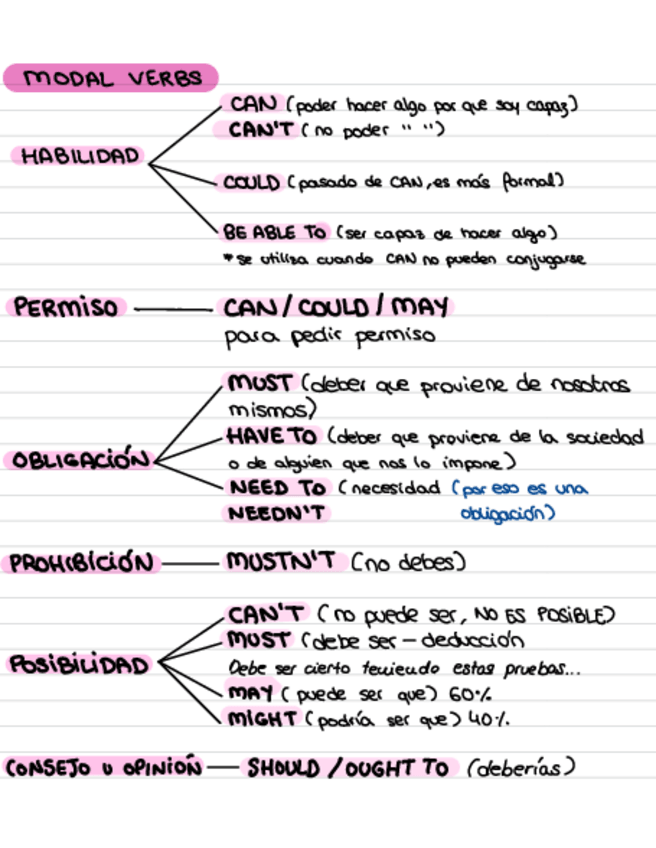 MODAL VERBS
CAN (poder hacer algo por que soy capaz)
CAN'T (no poder " ")
HABILIDAD
COULD (pasado de CAN, es más formal)
BE ABLE TO (ser capaz de hacer algo)
*se utiliza cuando CAN no pueden conjugarse
PERMISO CAN/COULD/MAY
para pedir permiso
MUST (deber que proviene de nosotros
mismos)
HAVE TO (deber que proviene de la sociedad
OBLIGACIÓN o de alguien que nos lo impone)
NEED TO (necesidad (por eso es una
NEEDN'T obligación)
PROHIBICIÓN MUSTN'T (no debes)
CAN'T (no puede ser, NO ES POSIBLE)
MUST (debe ser - deducción
POSIBILIDAD Debe ser cierto teniendo estas pruebas...
MAY (puede ser que) 60%
MIGHT (podría ser que) 40%.
CONSEJO U OPINIÓN SHOULD/OUGHT TO (deberías)